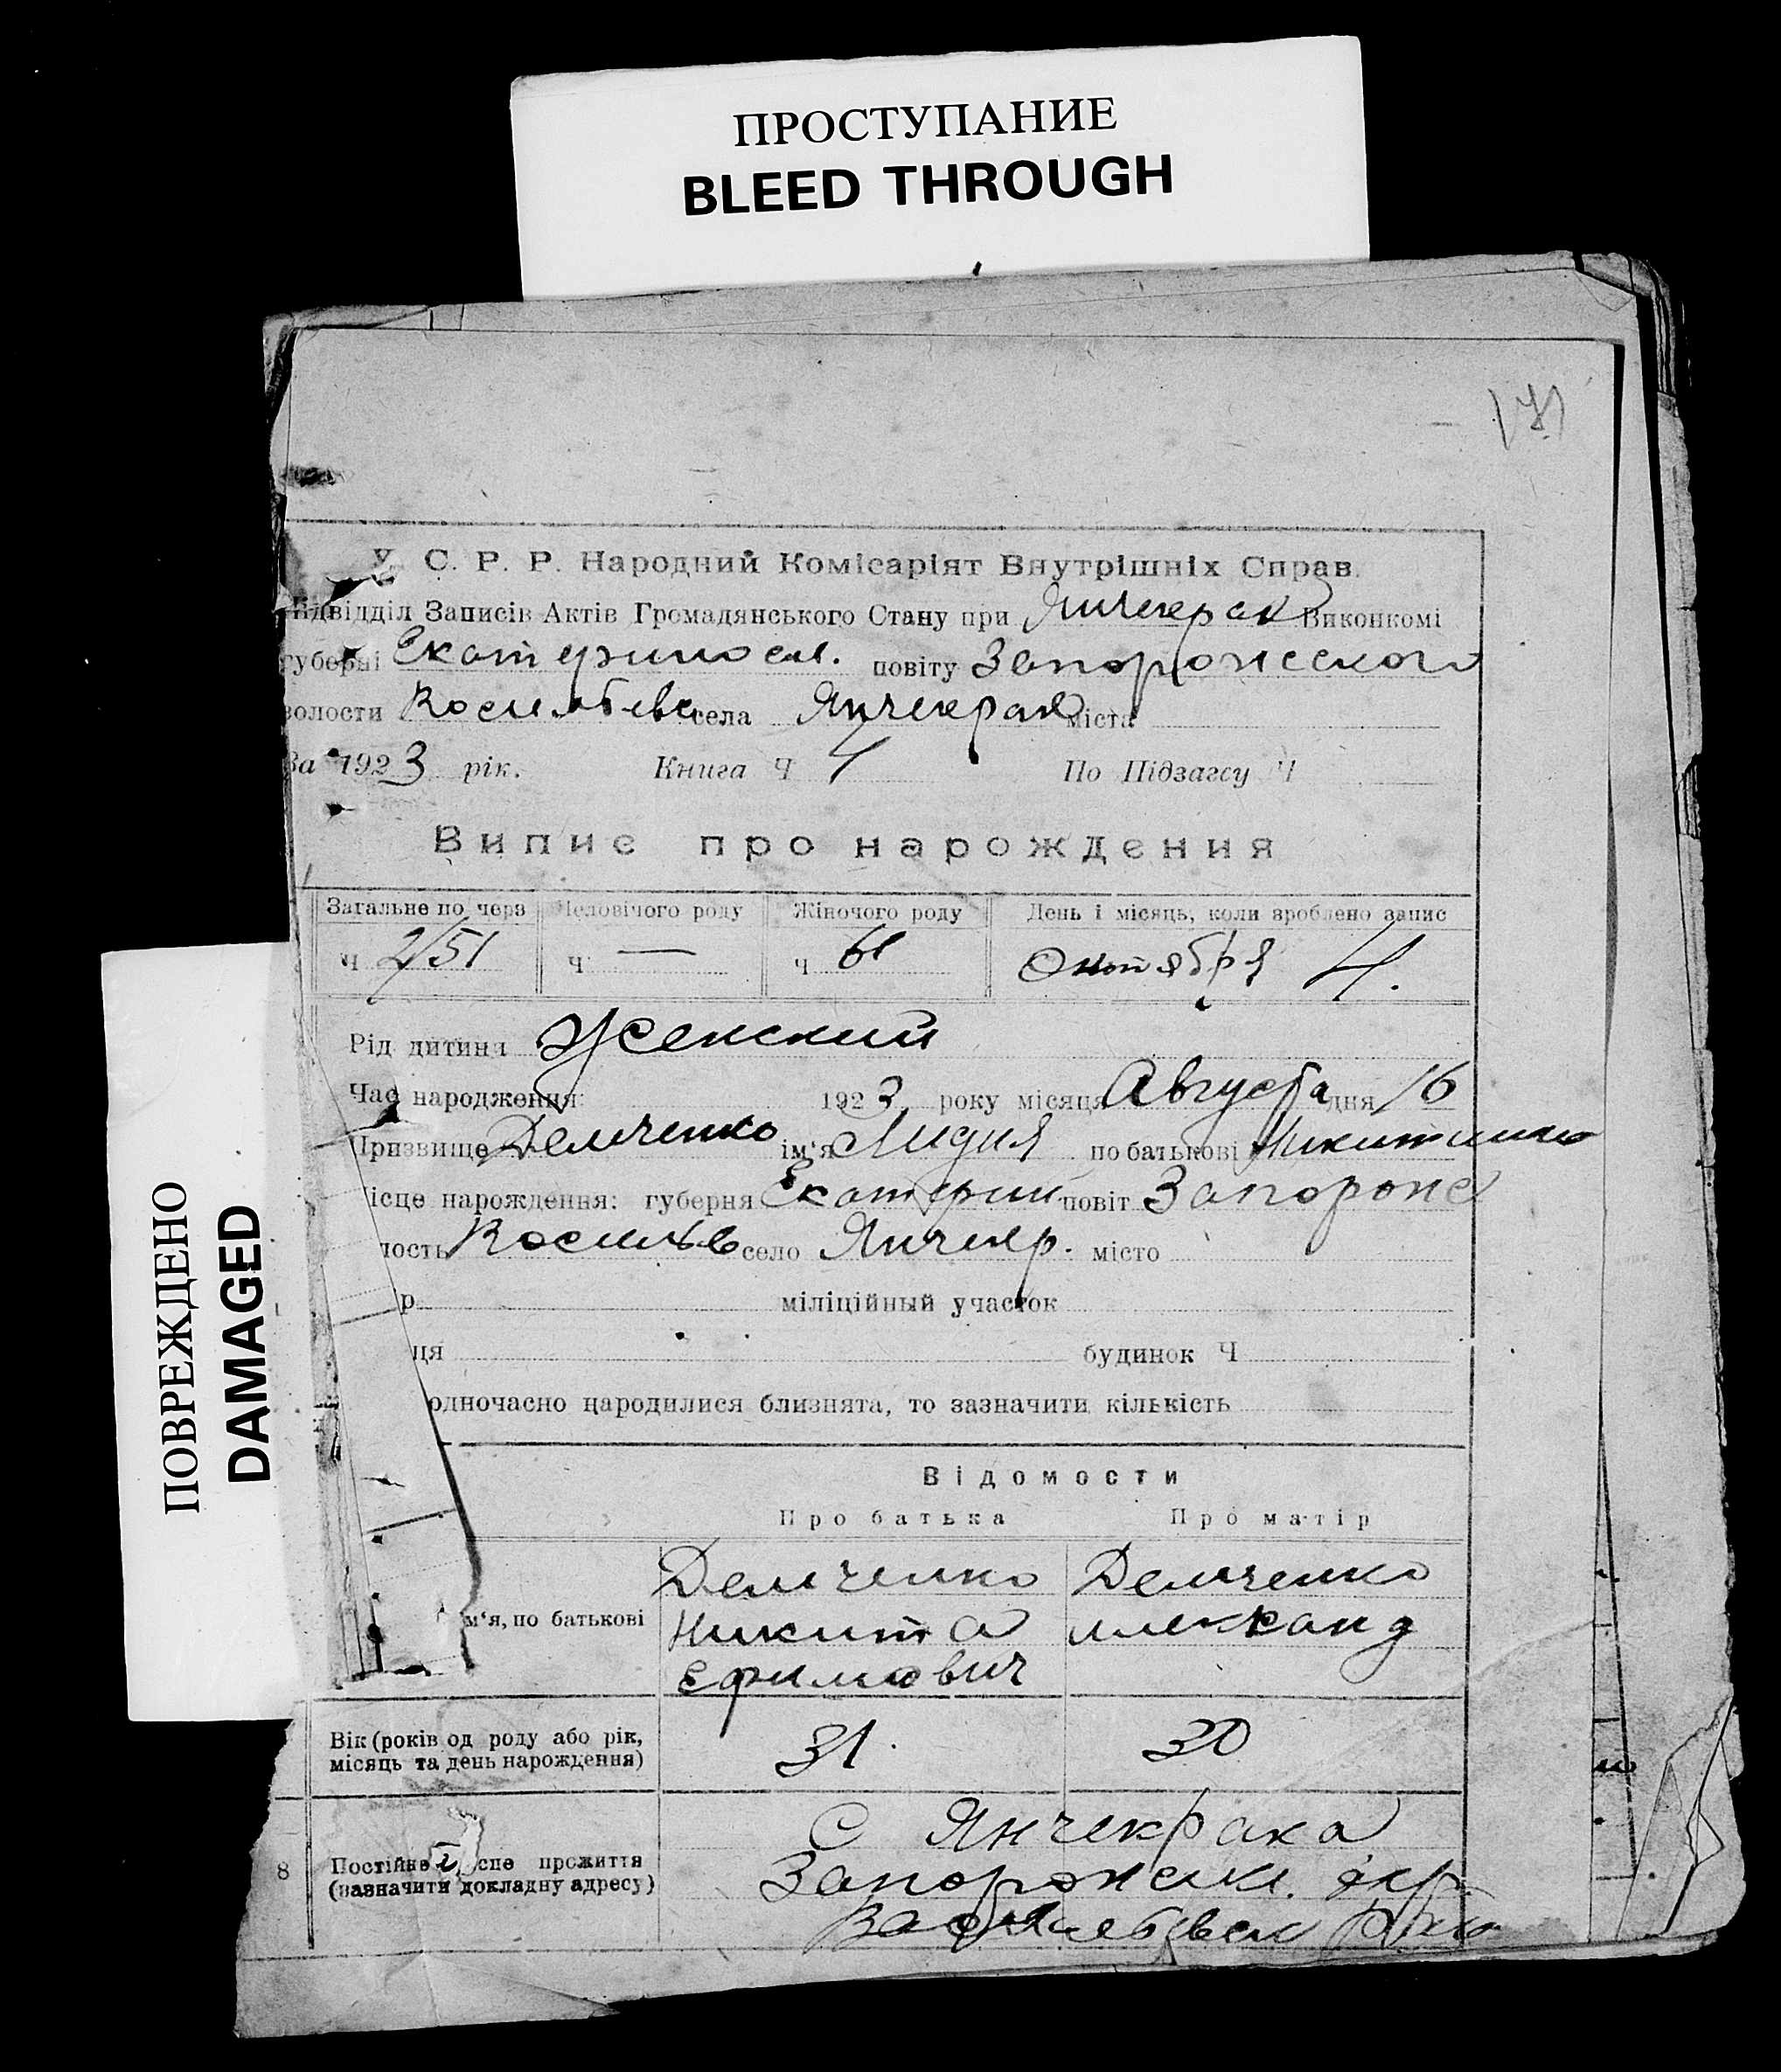 ПРОСТУПАНИЕ
BLEED THROUGH
У. С. Р. Р. Народний Комісаріят Внутрішніх Справ.
Підвідділ Записів Актів Громадянського Стану при Янчекрак Виконкомі
губерні Екатеринослав. повіту Запорожского
волости Васильевс села Янчекрак міста
За 1923 рік. Книга Ч 4 По Підзагсу Ч
Випис про народження
Загальне по черз Человічого роду Жіночого роду День і місяць, коли зроблено запис
Ч 2/51 Ч — Ч 61 Октября 4.
Рід дитини Женский
Час народження: 1923 року місяця Августа дня 16
Призвище Демченко ім'я Лидия по батькові Никитишна
ісце нарождення: губерня Екатерин повіт Запорож
лость Васильев село Янчекр. місто
р міліційный участок
ця будинок Ч
одночасно народилися близнята, то зазначити кількість
Відомости
Про батька Про матір
Демченко Демченко
м'я, по батькові Никита Александ
Ефимович
Вік (років од роду або рік,
місяць та день нарождення) 31. 30
С Янчекрака
8 Постійне місце прожиття Запорожск. окр.
(зазначити докладну адресу)
Васильевск
ПОВРЕЖДЕНО
DAMAGED